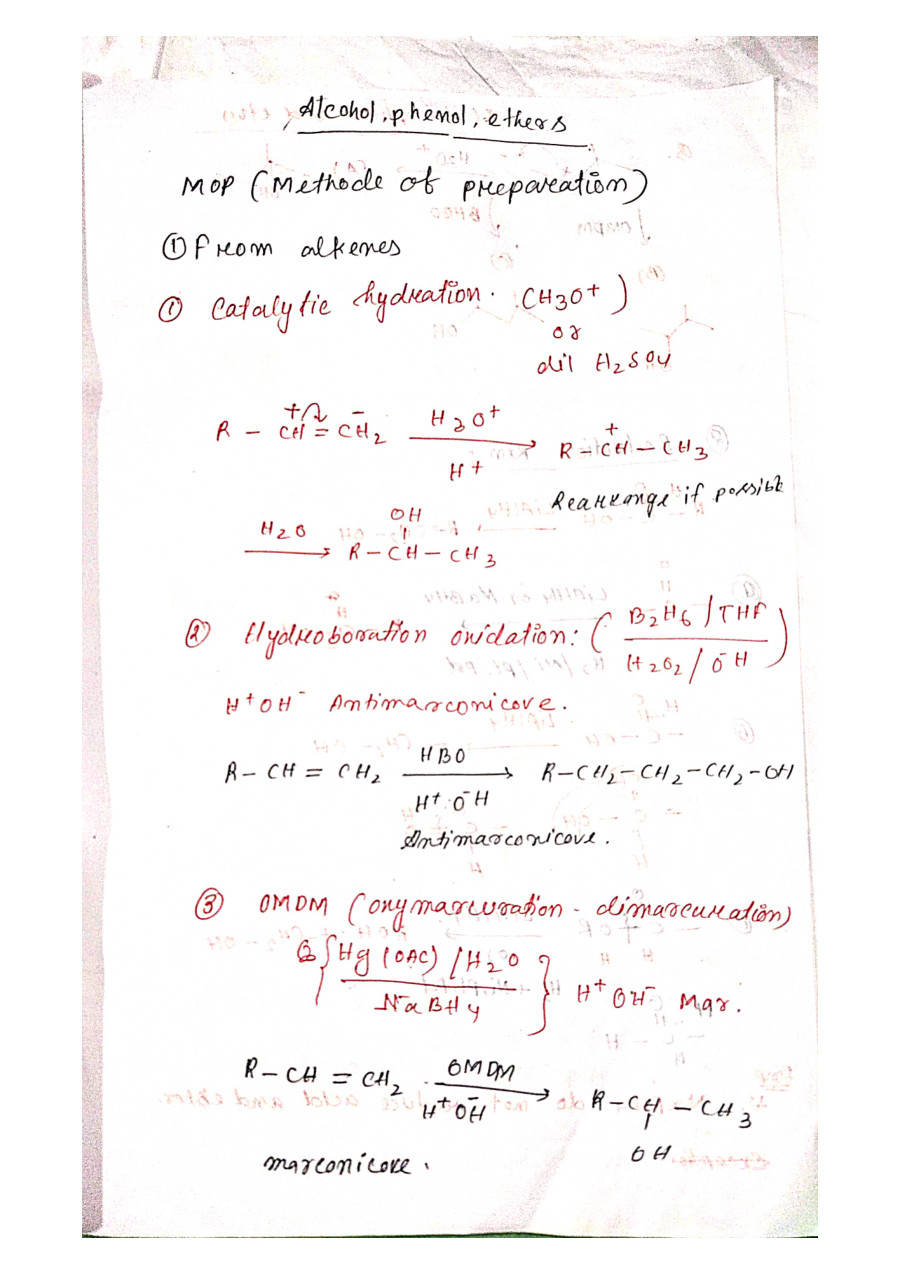 Alcohol, phenol, ethers
MOP (Methode of preparation)
① from alkenes
① Catalytic hydration. (H3O+)
or
dil H2SO4
R - CH = CH2 H3O+ / H+ → R - CH+ - CH3
Rearrange if possible
H2O → R - CH(OH) - CH3
② Hydroboration oxidation: (B2H6 / THF
H2O2 / ŌH)
H+ OH- Antimarconicove.
R - CH = CH2 HBO / H+ ŌH → R-CH2-CH2-CH2-OH
Antimarconicove.
③ OMDM (oxymarcuration - dimarcuration)
{Hg(OAC) / H2O
NaBH4} H+ OH- Mar.
R - CH = CH2 OMDM / H+ ŌH → R-CH - CH3
OH
marconicove.